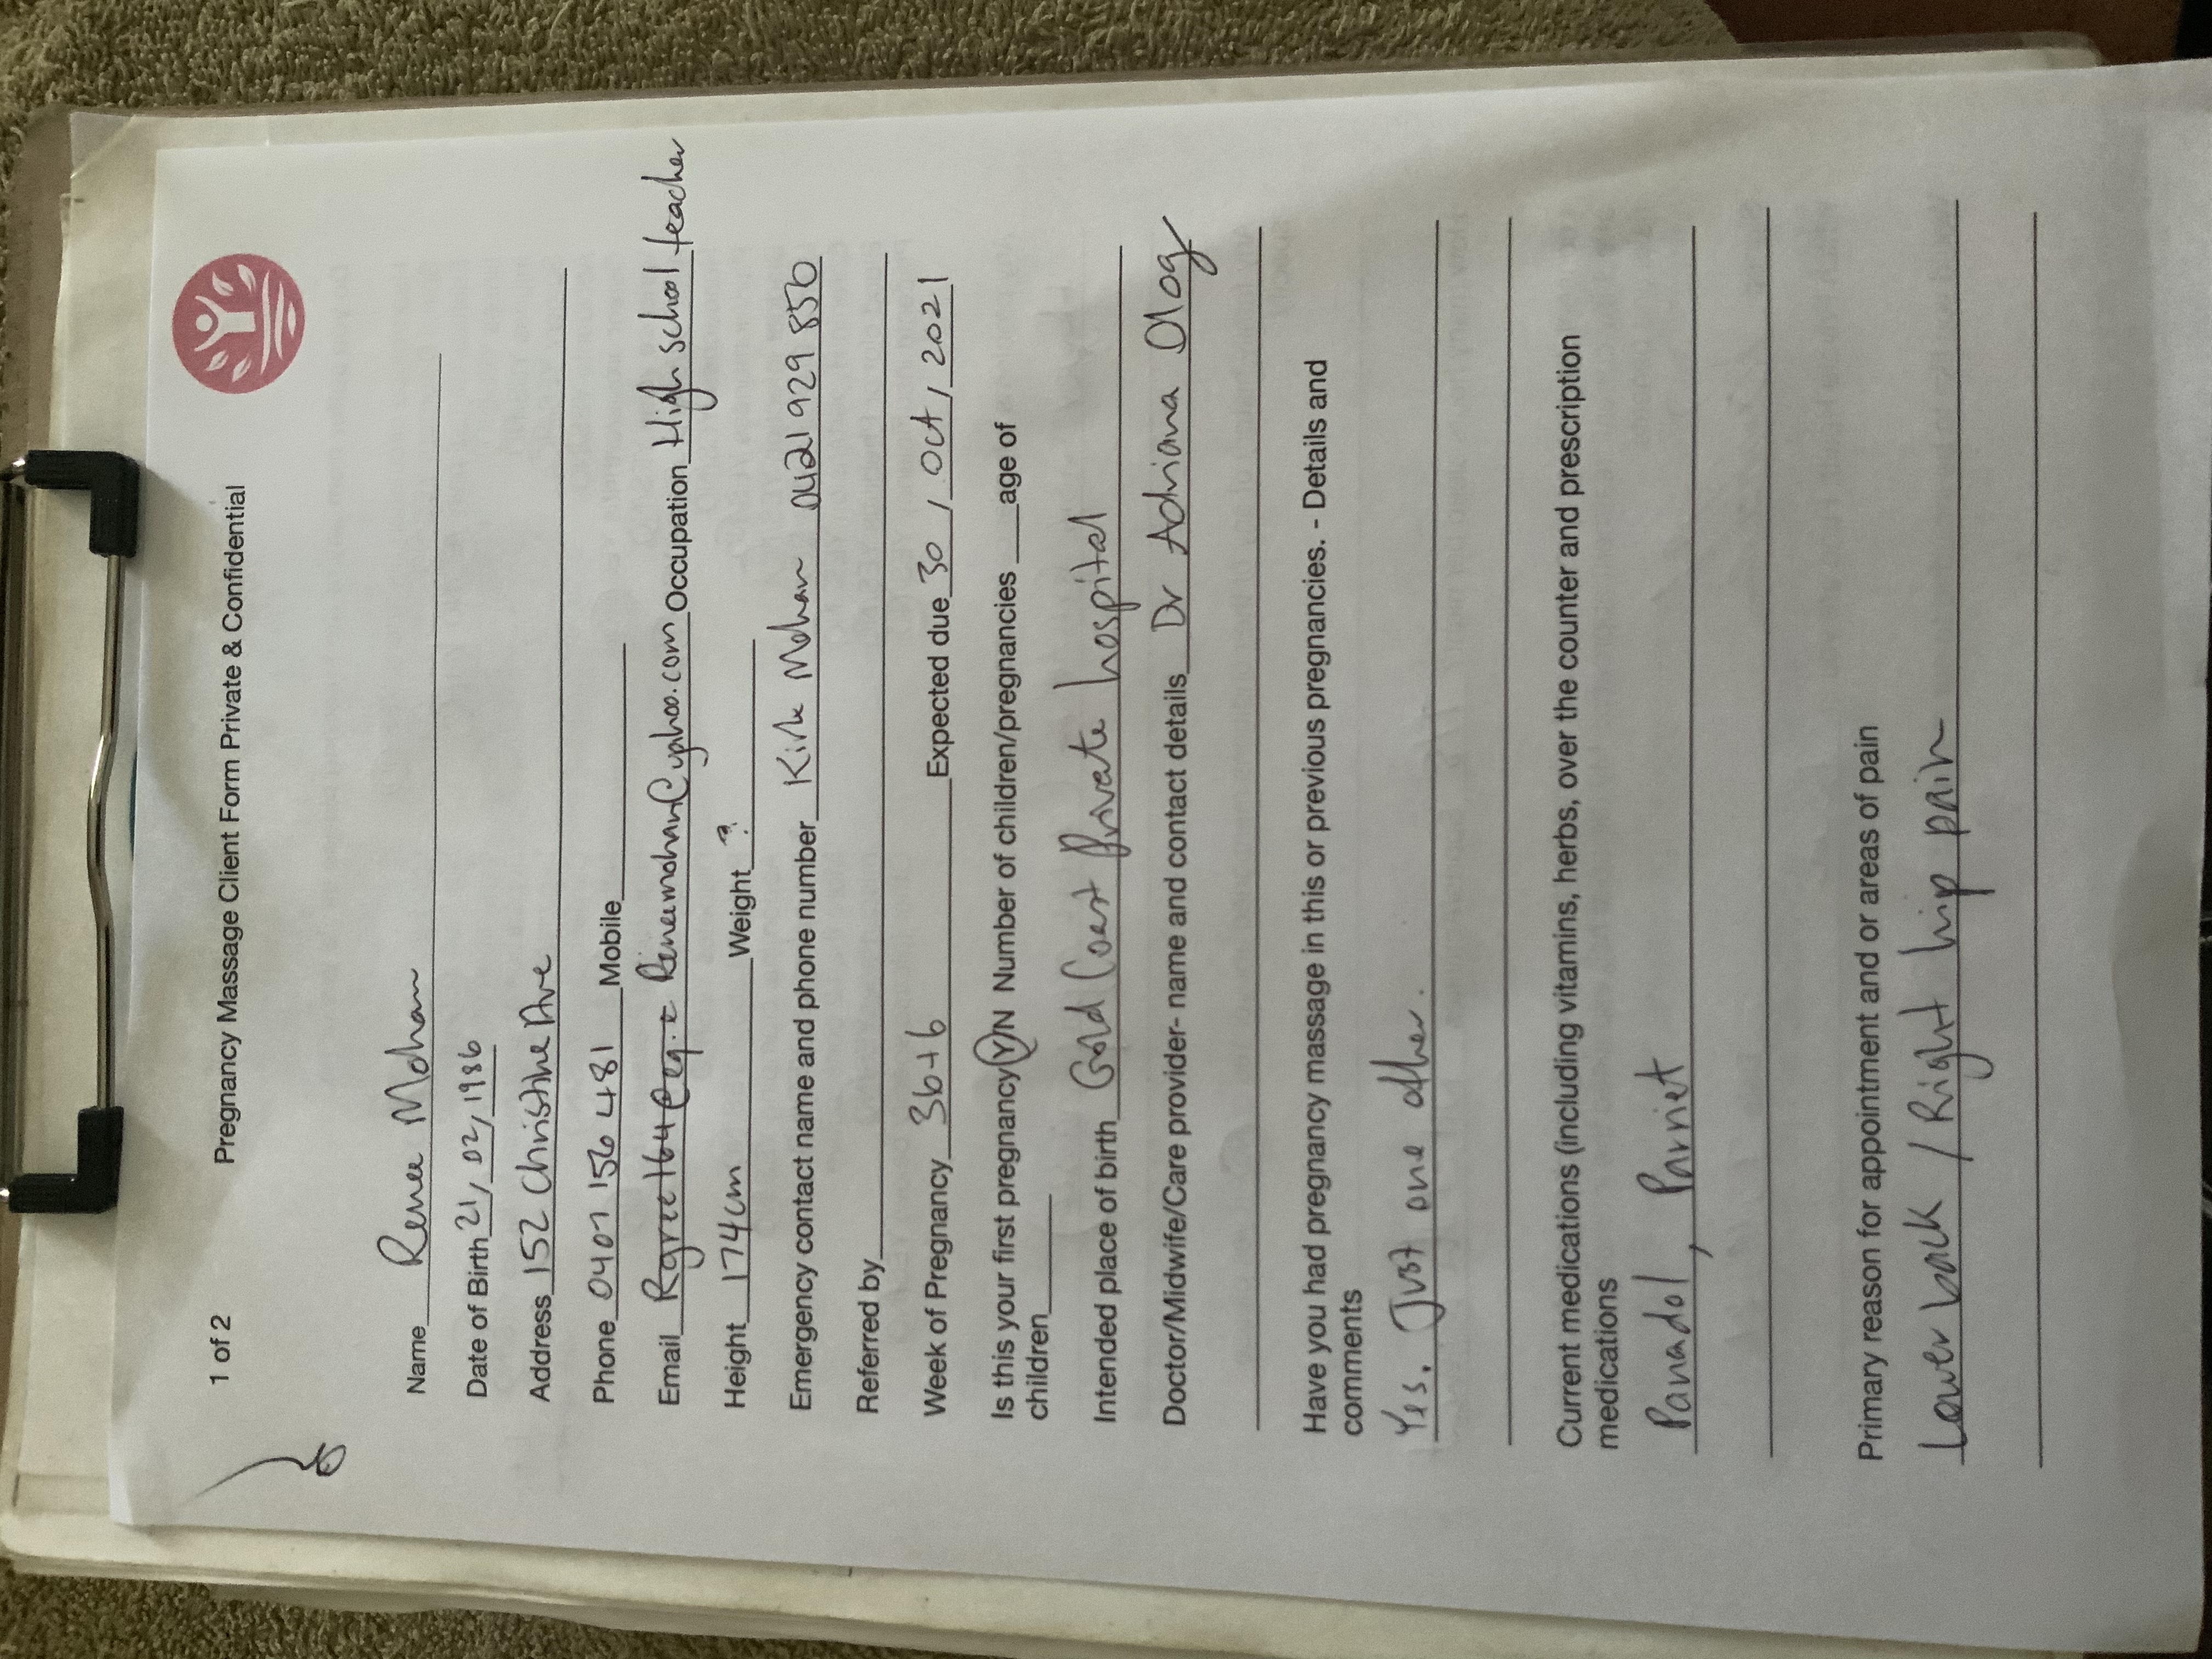 1 of 2 Pregnancy Massage Client Form Private & Confidential
Name Renee Mohan
Date of Birth 21/02/1986
Address 152 Christine Ave
Phone 0401 156 481 Mobile
Email Reneemohan@yahoo.com Occupation High school teacher
Height 174cm Weight ?
Emergency contact name and phone number Kirk Mohan 0421 929 856
Referred by
Week of Pregnancy 36+6 Expected due 30 / Oct / 2021
Is this your first pregnancy Y/N Number of children/pregnancies ___age of
children
Intended place of birth Gold Coast Private hospital
Doctor/Midwife/Care provider- name and contact details Dr Adriana Olog
Have you had pregnancy massage in this or previous pregnancies. - Details and
comments
Yes. Just one other.
Current medications (including vitamins, herbs, over the counter and prescription
medications
Panadol, Parriet
Primary reason for appointment and or areas of pain
Lower back / Right hip pain